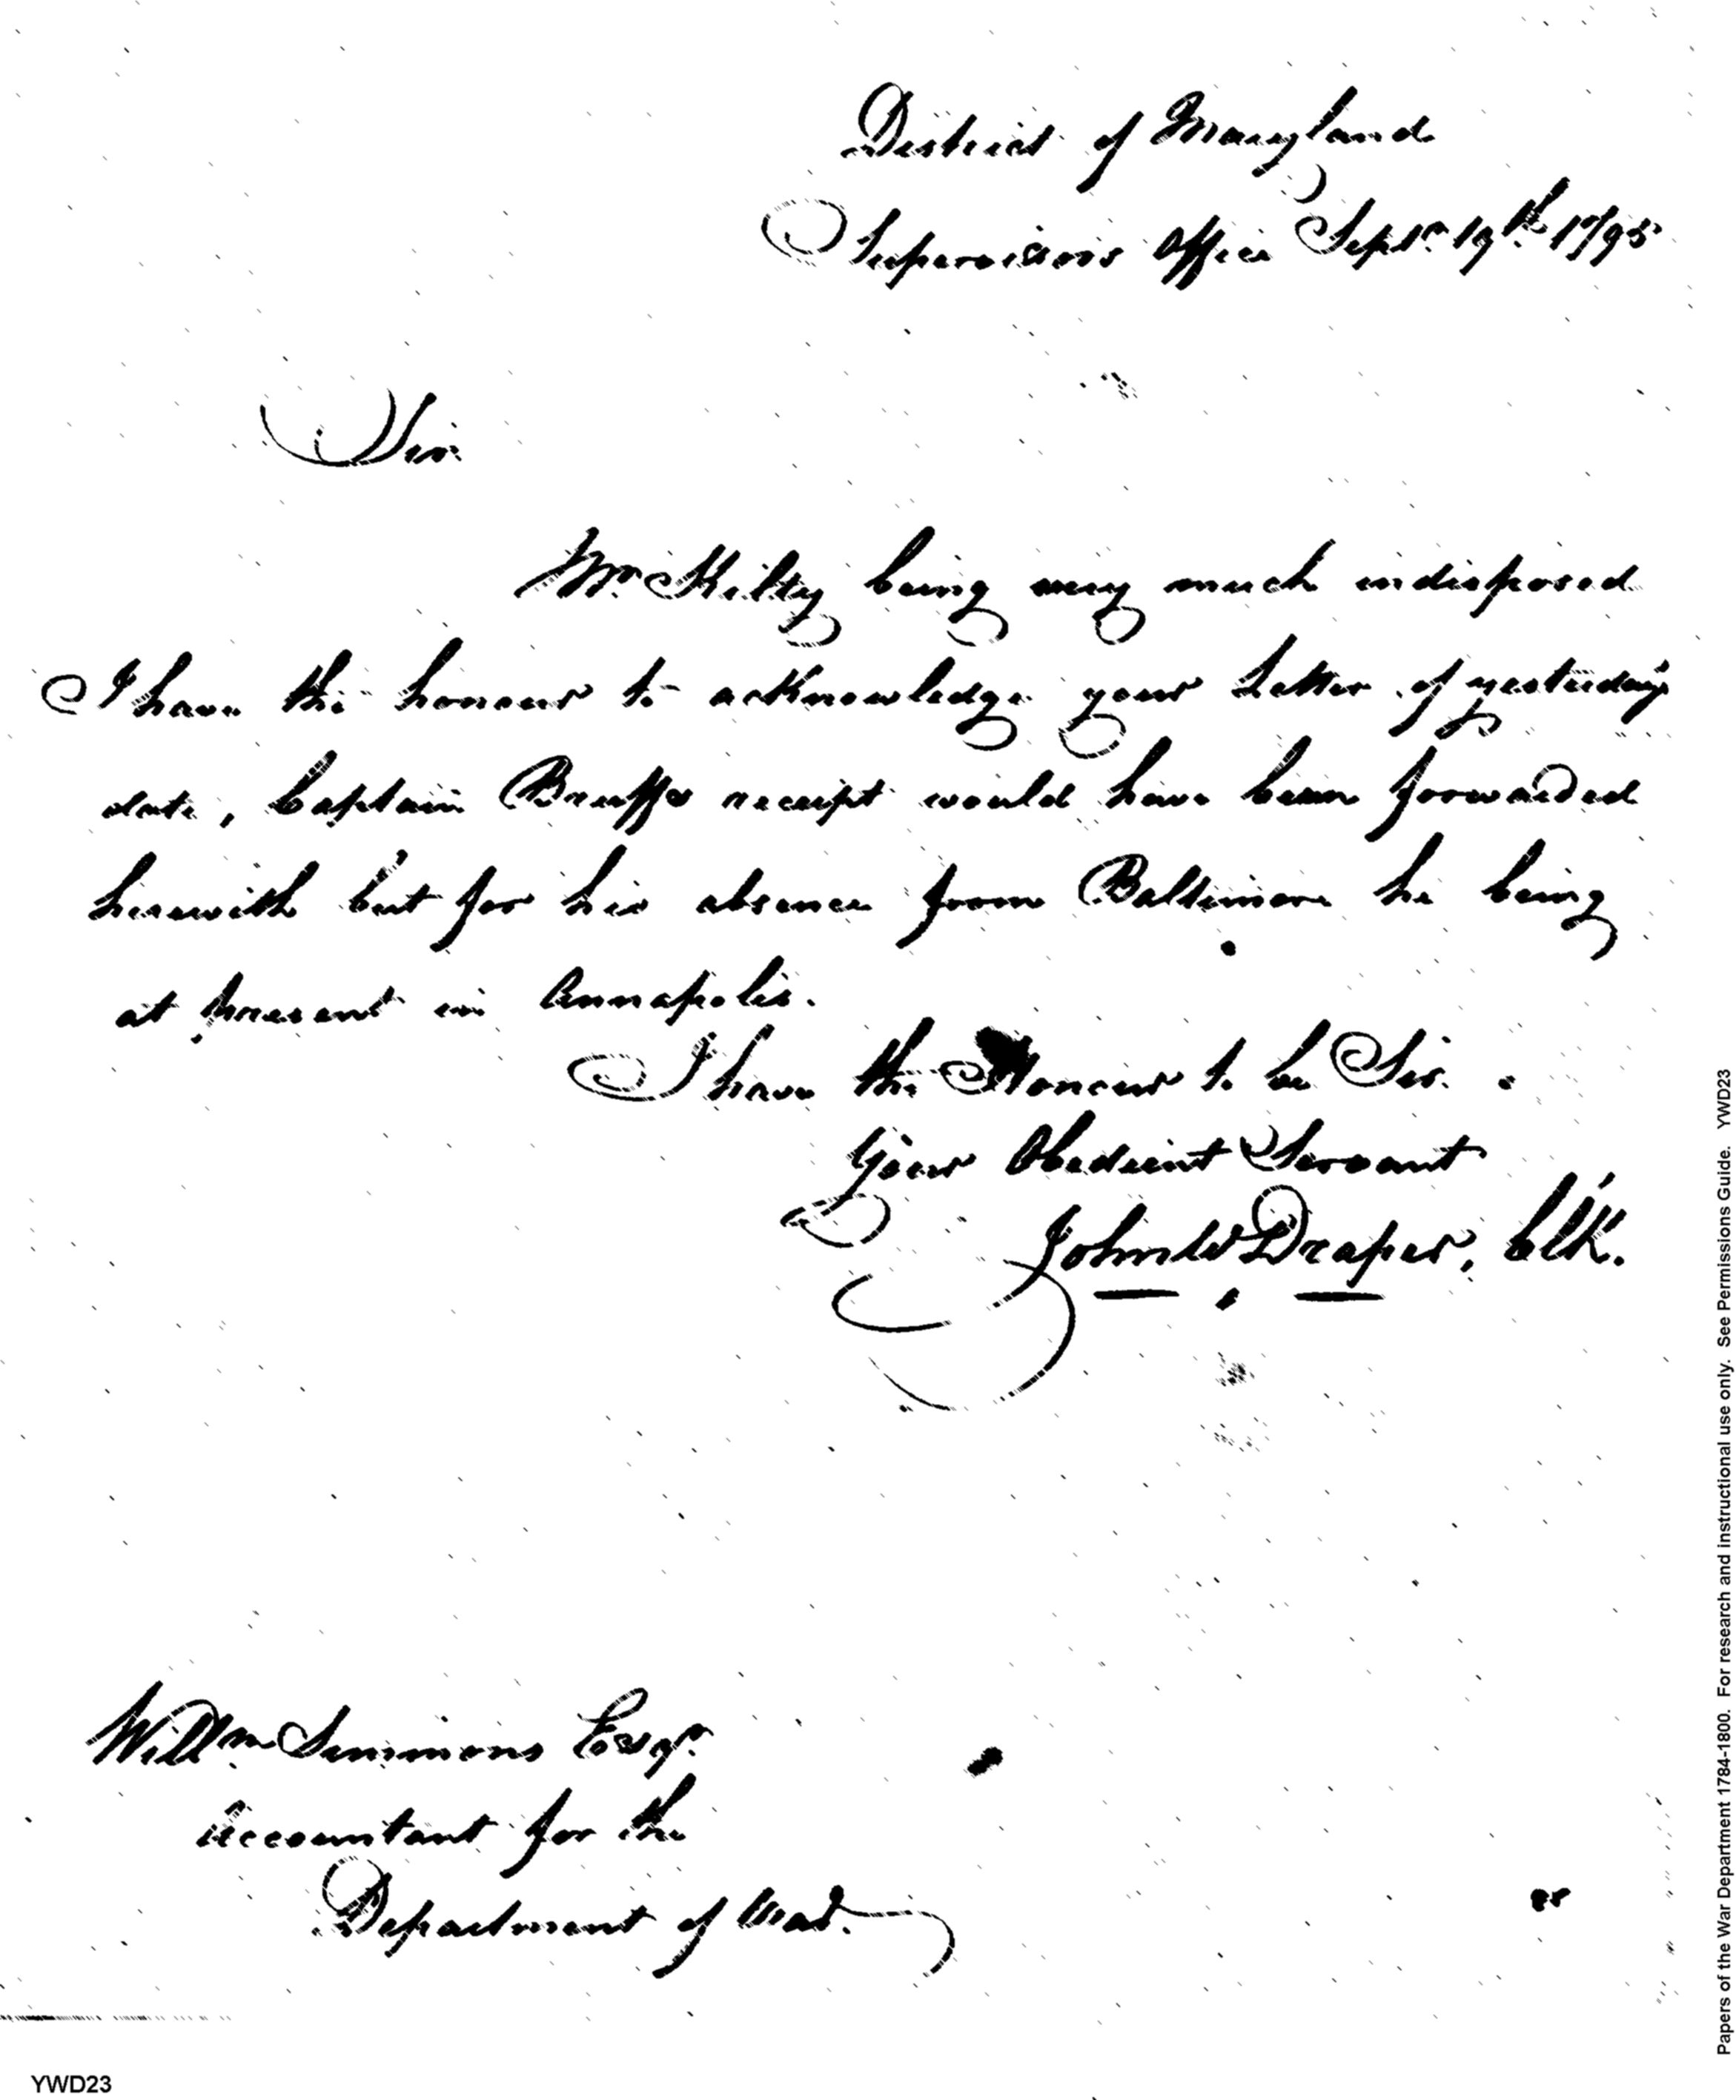 District of Maryland
Supervisors Office Septr. 19th 1795
Sir
Mr. Kilty being very much indisposed
I have the honour to acknowledge your Letter of yesterday's
date, Captain Bruffs receipt would have been forwarded
herewith but for his absence from Baltimore he being
at present in Annapolis.
I have the Honour to be Sir.
Your Obedient Servant
John W Draper, Clk.
Willm Simmons Esqr.
Accountant for the
Department of War.
YWD23
Papers of the War Department 1784-1800. For research and instructional use only. See Permissions Guide. YWD23